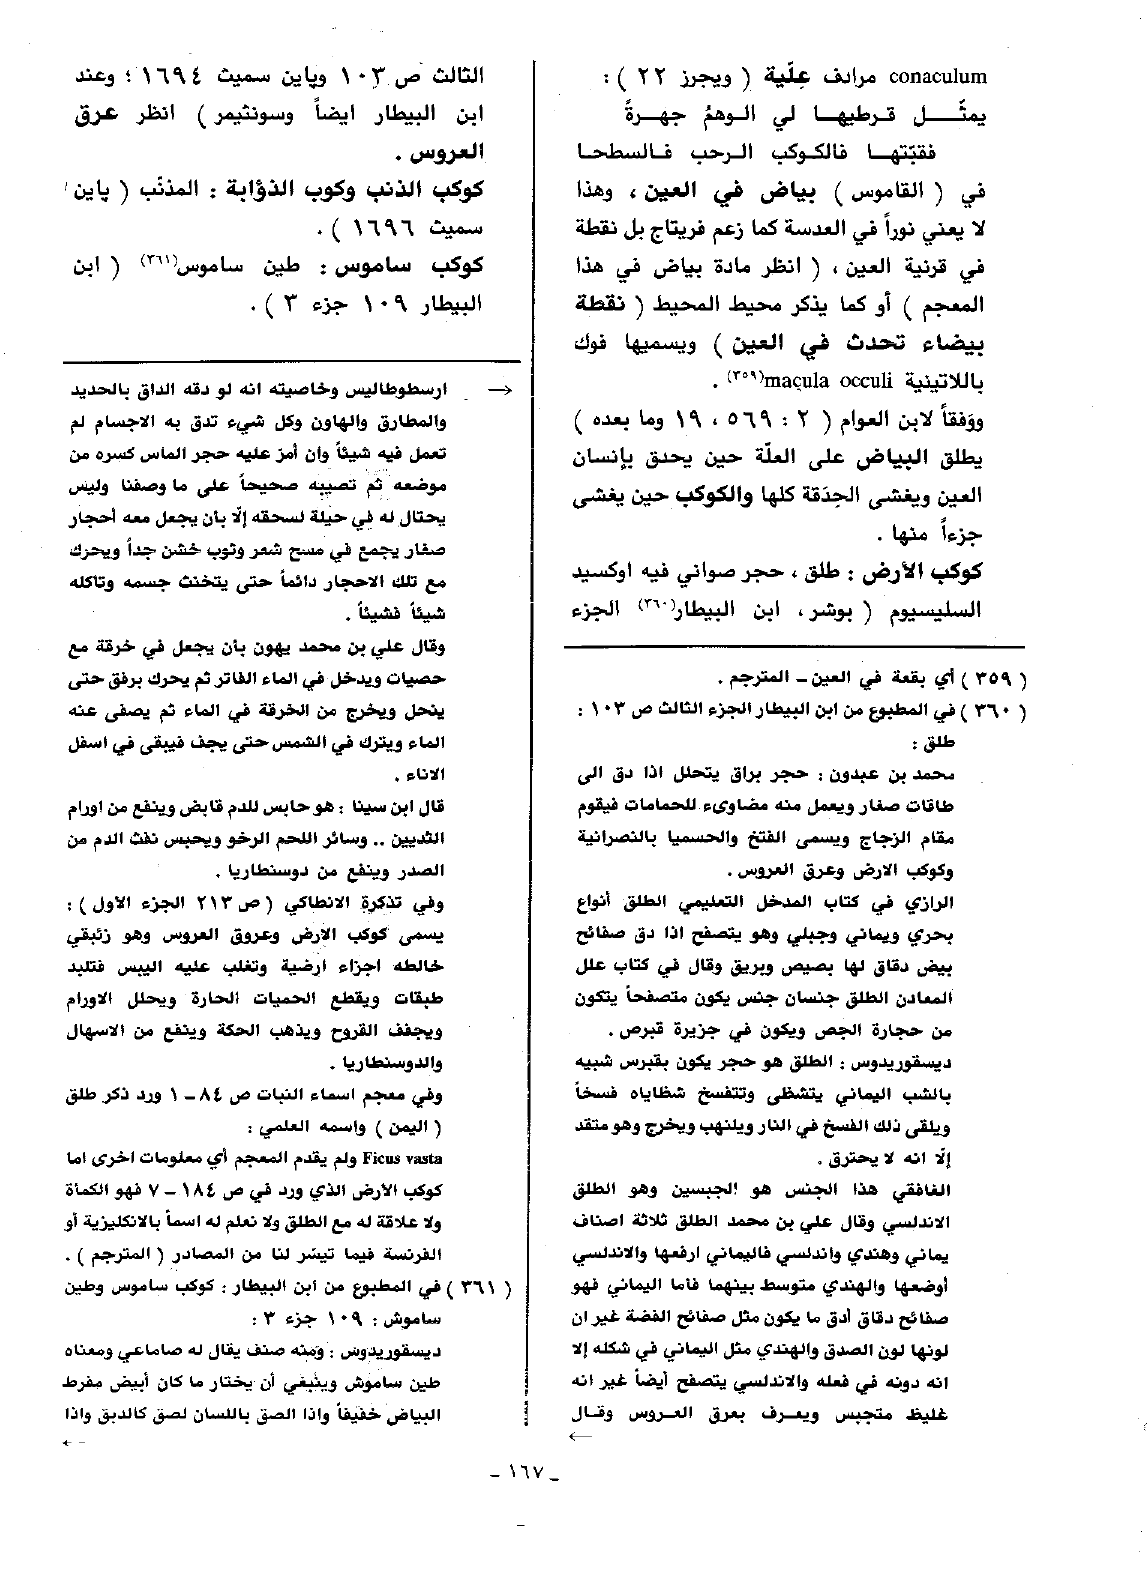 conaculum مرادف عِلّية ( ويجرز ٢٢ ) :
يمثّــــل قــرطبهــا لي الــوهمُ جهــرةً
فقبّتهــا فالكـوكب الـرحب فـالسطحـا
في ( القاموس ) بياض في العين ، وهذا
لا يعني نوراً في العدسة كما زعم فريتاج بل نقطة
في قرنية العين ، ( انظر مادة بياض في هذا
المعجم ) أو كما يذكر محيط المحيط ( نقطة
بيضاء تحدث في العين ) ويسميها فوك
باللاتينية macula occuli(٣٥٩) .
ووفقاً لابن العوام ( ٢ : ٥٦٩ ، ١٩ وما بعده )
يطلق البياض على العلّة حين يحدق بإنسان
العين ويغشى الحدَقة كلها والكوكب حين يغشى
جزءاً منها .
كوكب الأرض : طلق ، حجر صواني فيه اوكسيد
السليسيوم ( بوشر ، ابن البيطار(٣٦٠) الجزء
( ٣٥٩ ) أي بقعة في العين ـ المترجم .
( ٣٦٠ ) في المطبوع من ابن البيطار الجزء الثالث ص ١٠٣ :
طلق :
محمد بن عبدون : حجر براق يتحلل اذا دق الى
طاقات صغار ويعمل منه مضاوىء للحمامات فيقوم
مقام الزجاج ويسمى الفتخ والحسميا بالنصرانية
وكوكب الارض وعرق العروس .
الرازي في كتاب المدخل التعليمي الطلق أنواع
بحري ويماني وجبلي وهو يتصفح اذا دق صفائح
بيض دقاق لها بصيص وبريق وقال في كتاب علل
المعادن الطلق جنسان جنس يكون متصفحاً يتكون
من حجارة الجص ويكون في جزيرة قبرص .
ديسقوريدوس : الطلق هو حجر يكون بقبرس شبيه
بالشب اليماني يتشظى وتتفسخ شظاياه فسخاً
ويلقى ذلك الفسخ في النار ويلتهب ويخرج وهو متقد
إلّا انه لا يحترق .
الغافقي هذا الجنس هو الجبسين وهو الطلق
الاندلسي وقال علي بن محمد الطلق ثلاثة اصناف
يماني وهندي واندلسي فاليماني ارفعها والاندلسي
أوضعها والهندي متوسط بينهما فأما اليماني فهو
صفائح دقاق أدق ما يكون مثل صفائح الفضة غير ان
لونها لون الصدق والهندي مثل اليماني في شكله إلا
انه دونه في فعله والاندلسي يتصفح أيضاً غير انه
غليظ متجبس ويعـرف بعرق العـروس وقـال
←
الثالث ص ١٠٣ وپاين سميث ١٦٩٤ ؛ وعند
ابن البيطار ايضاً وسونثيمر ) انظر عرق
العروس .
كوكب الذنب وكوب الذؤابة : المذنّب ( پاين
سميث ١٦٩٦ ) .
كوكب ساموس : طين ساموس(٣٦١) ( ابن
البيطار ١٠٩ جزء ٣ ) .
→ ارسطوطاليس وخاصيته انه لو دقه الداق بالحديد
والمطارق والهاون وكل شيء تدق به الاجسام لم
تعمل فيه شيئاً وان أمز عليه حجر الماس كسره من
موضعه ثم تصيبه صحيحاً على ما وصفنا وليس
يحتال له في حيلة لسحقه إلّا بأن يجعل معه أحجار
صغار يجمع في مسح شعر وثوب خشن جداً ويحرك
مع تلك الاحجار دائماً حتى يتخنث جسمه وتاكله
شيئاً فشيئاً .
وقال علي بن محمد يهون بأن يجعل في خرقة مع
حصيات ويدخل في الماء الفاتر ثم يحرك برفق حتى
ينحل ويخرج من الخرقة في الماء ثم يصفى عنه
الماء ويترك في الشمس حتى يجف فيبقى في اسفل
الاناء .
قال ابن سينا : هو حابس للدم قابض وينفع من اورام
الثديين .. وسائر اللحم الرخو ويحبس نفث الدم من
الصدر وينفع من دوسنطاريا .
وفي تذكرة الانطاكي ( ص ٢١٣ الجزء الاول ) :
يسمى كوكب الأرض وعروق العروس وهو زئبقي
خالطه اجزاء ارضية وتغلب عليه اليبس فتلبد
طبقات ويقطع الحميات الحارة ويحلل الاورام
ويجفف القروح ويذهب الحكة وينفع من الاسهال
والدوسنطاريا .
وفي معجم اسماء النبات ص ٨٤ ـ ١ ورد ذكر طلق
( اليمن ) واسمه العلمي :
Ficus vasta ولم يقدم المعجم أي معلومات اخرى اما
كوكب الأرض الذي ورد في ص ١٨٤ ـ ٧ فهو الكمأة
ولا علاقة له مع الطلق ولا نعلم له اسماً بالانكليزية أو
الفرنسة فيما تيسّر لنا من المصادر ( المترجم ) .
( ٣٦١ ) في المطبوع من ابن البيطار : كوكب ساموس وطين
ساموش : ١٠٩ جزء ٣ :
ديسقوريدوس : ومنه صنف يقال له صاماعي ومعناه
طين ساموش وينبغي أن يختار ما كان أبيض مفرط
البياض خفيفاً واذا الصق باللسان لصق كالدبق واذا
←
ـ ١٦٧ ـ